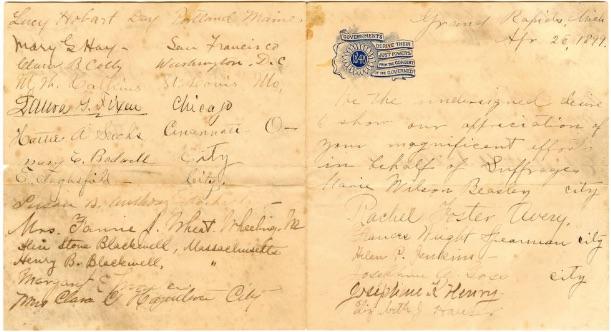 Lucy Hobart Day Portland Maine
Mary G Hay - San Francisco
Clara B Colby Washington, D.C
St Louis Mo,
Laura G. Dixon Chicago
Hattie A Sachs Cincinnati O-
Mary E. Badwell City
City.
Susan B. Anthony
Mrs. Fannie J. Wheat Wheeling,
Stone Blackwell, Massachusetts
Henry B. Blackwell, "
Margaret E
Mrs Clara C. Hazenlson City
Grand Rapids, Mich
Apr. 26, 1899.
GOVERNMENTS
DERIVE THEIR
JUST POWERS
FROM THE CONSENT
OF THE GOVERNED
1848
We the undersigned desire
to show our appreciation of
your magnificent efforts
in behalf of Suffrages
Marie Wilson Beasley city
Rachel Foster Avery,
Frances Wright Spearman city
Helen P. Jenkins -
Josephine G. Goss city
Josephine K. Henry
Elizabeth J. Hauser